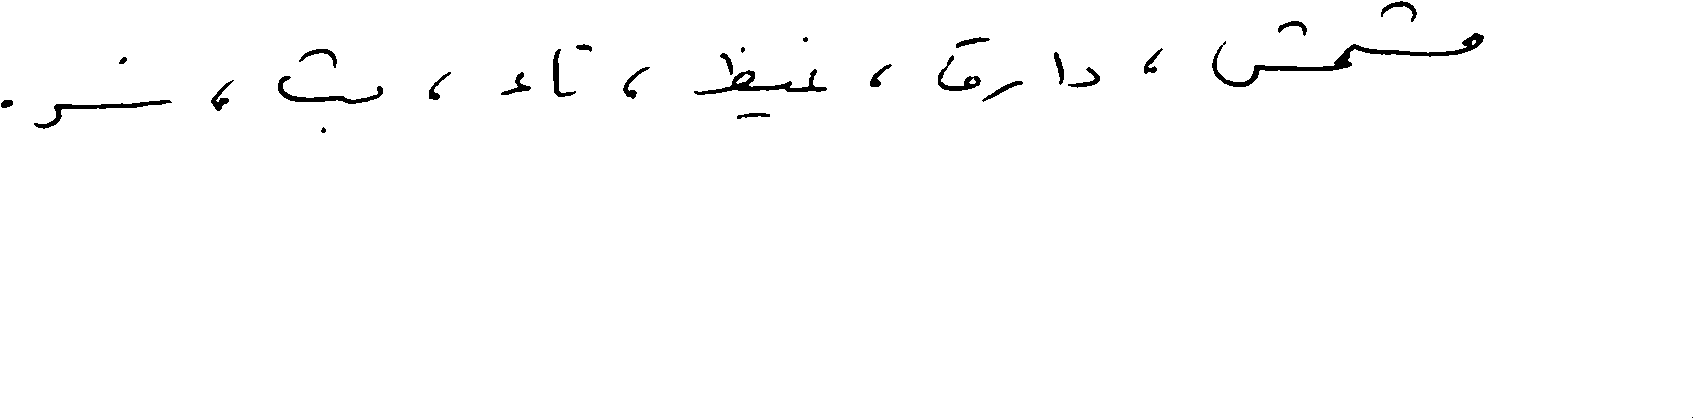 مشمش ، دارقا ، غيظ ، تاء ، بث ، نشر .